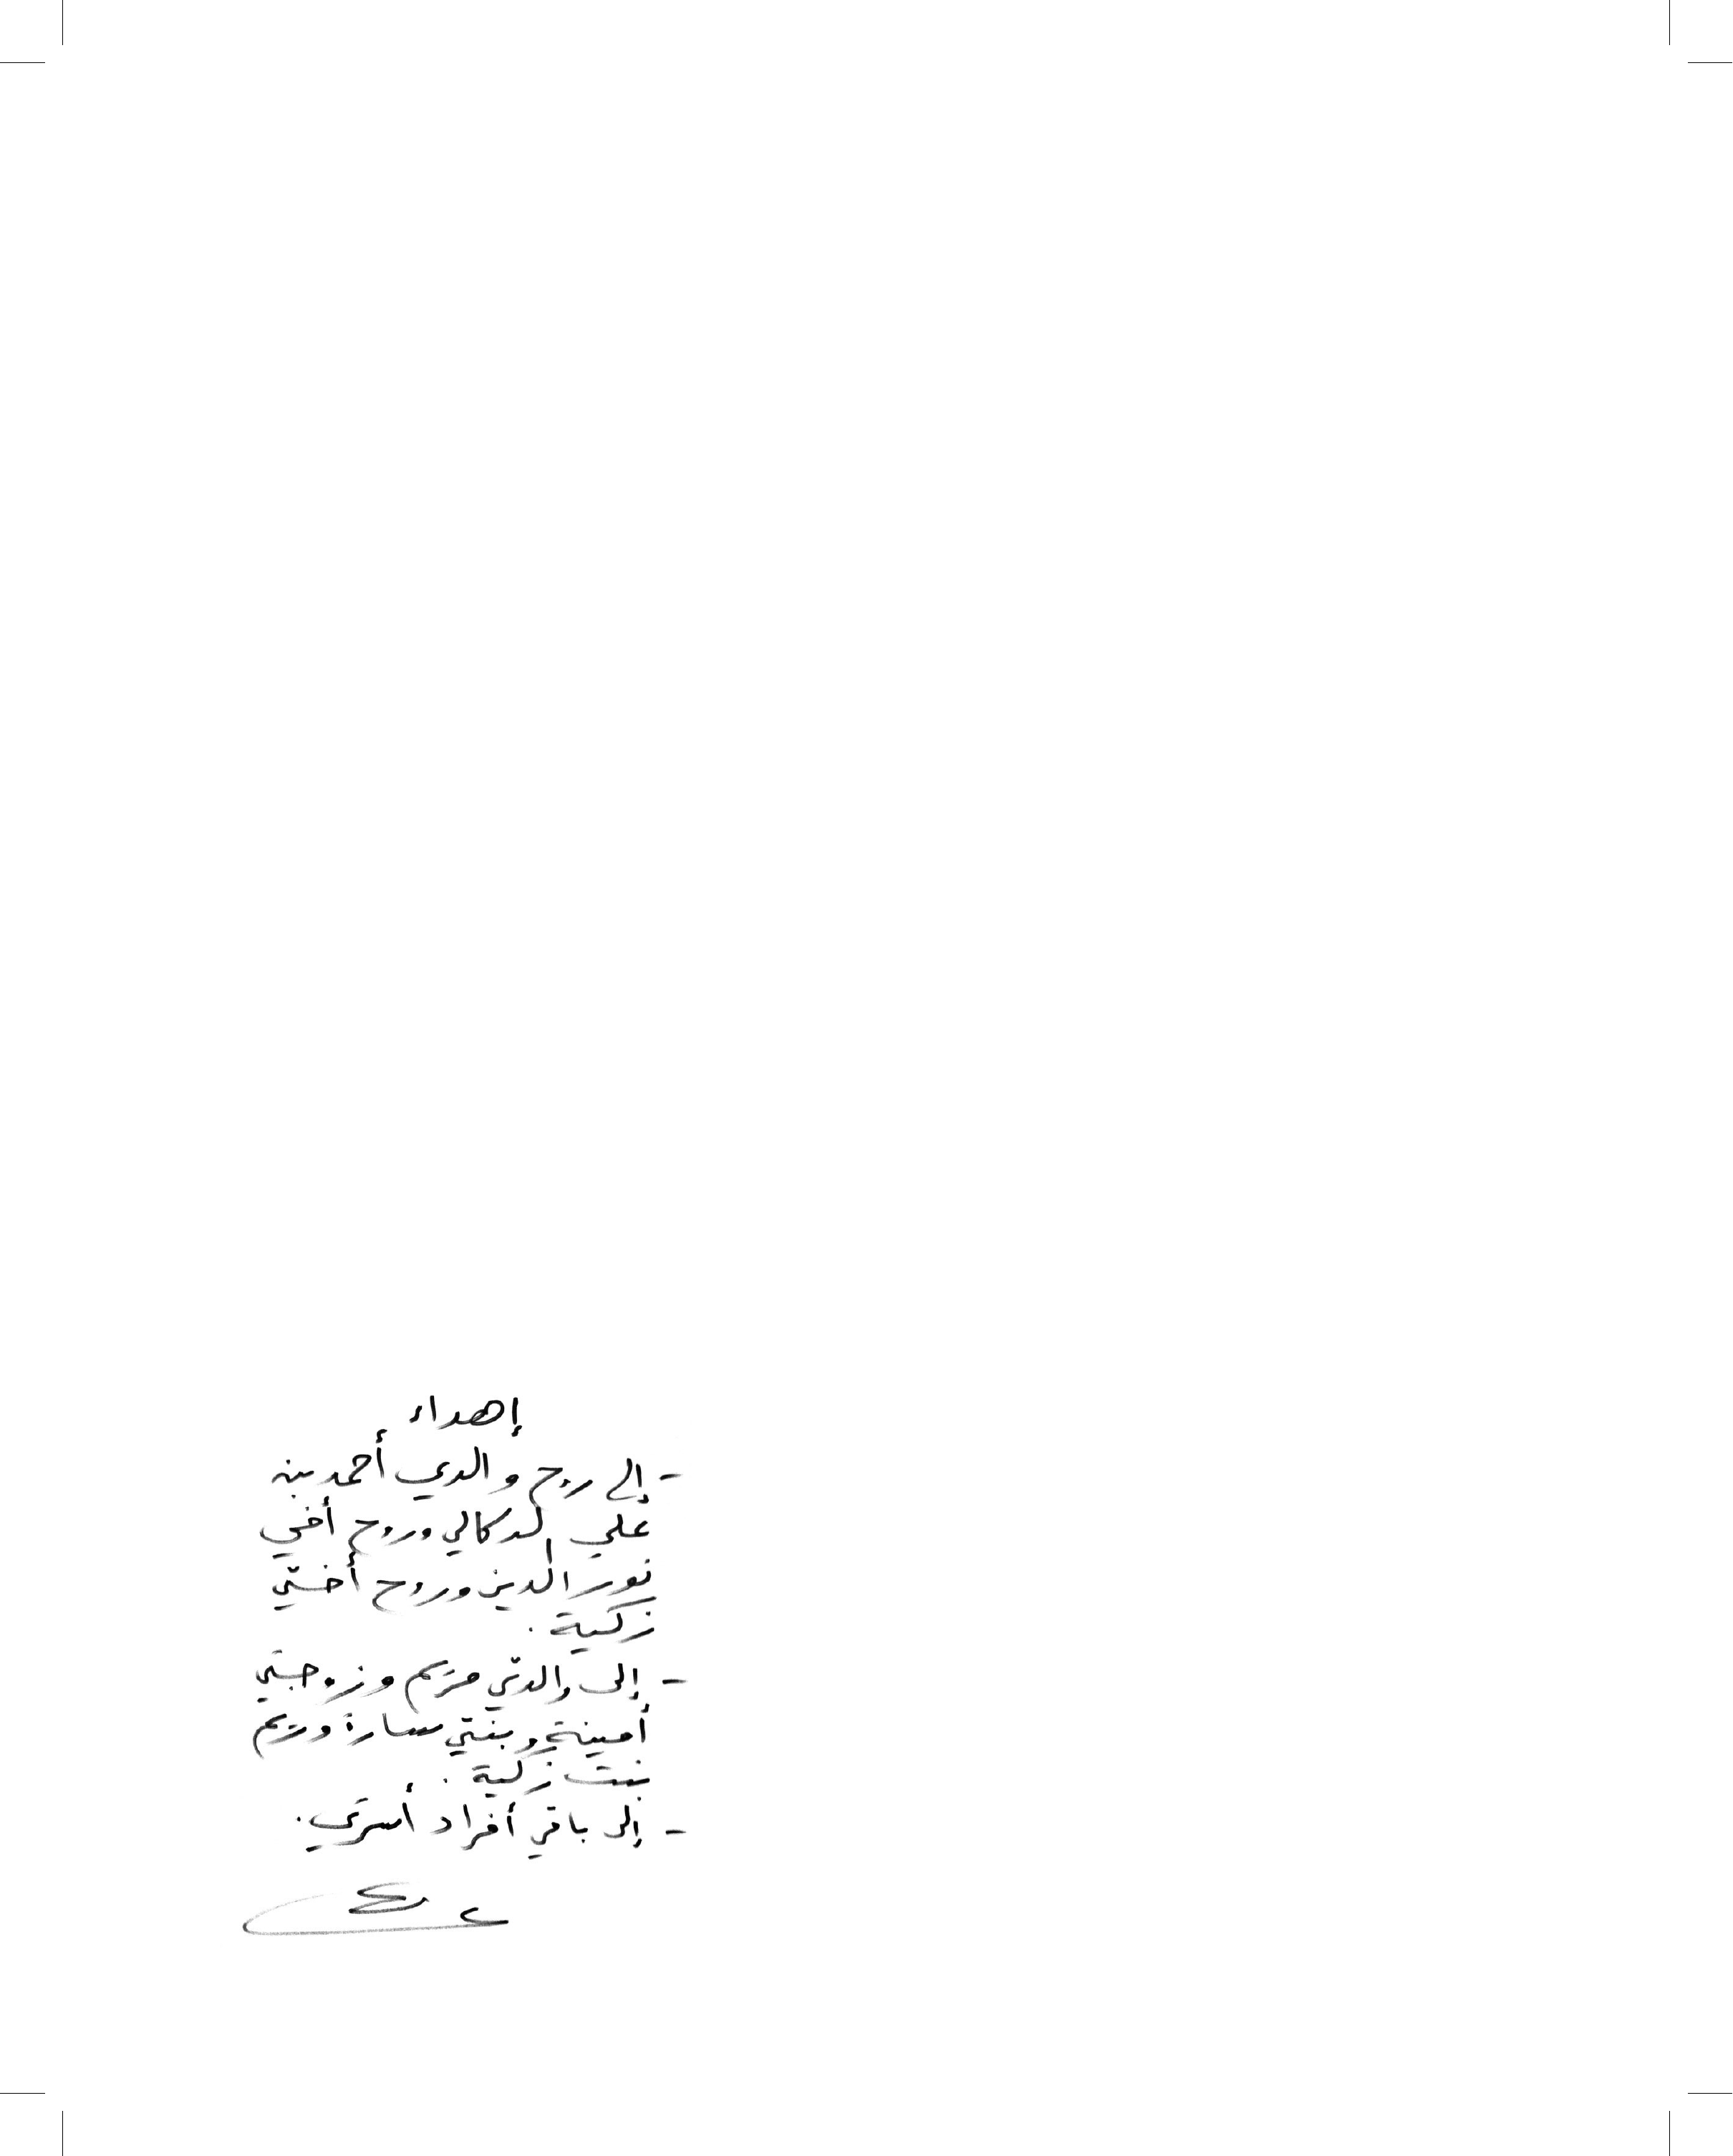 إهداء
- إلى روح والدي أحمد بن
علي الدكالي وروح أخي
نور الدين وروح أختي
زكية.
- إلى والدتي مريم وزوجتي
أمينة وبنتي سارة ومريم
بنت زكية.
- إلى باقي أفراد أسرتي.